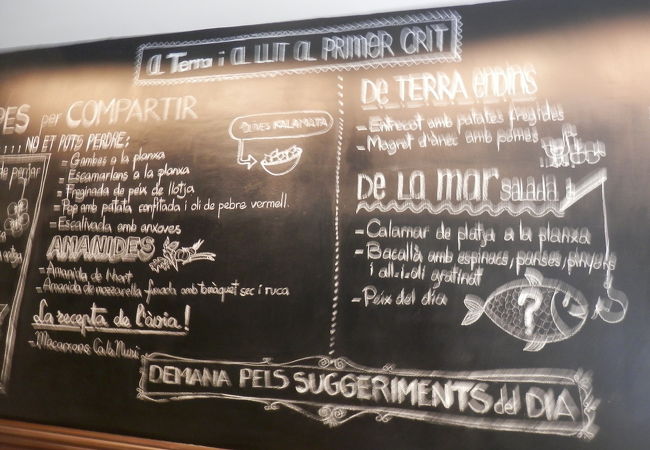 a Terra i al LLIT al PRIMER CRIT
PES per COMPARTIR
....NO ET POTS PERDRE:
- Gambes a la planxa
- Escamarlans a la planxa
- Freginada de peix de llotja
- Pop amb patata confitada i oli de pebre vermell.
- Escalivada amb anxoves
OLIVES KALAMATA
AMANIDES
- Amanida de l'hort
- Amanida de mozzarella fumada amb tomàquet sec i ruca
La recepta de l'àvia!
- Macarrons Ca la Nuri
De TERRA endins
- Entrecot amb patates fregides
- Magret d'ànec amb pomes
De La mar salada
- Calamar de platja a la planxa
- Bacallà amb espinacs, panses, pinyons
i all.i.oli gratinat
- Peix del dia
?
DEMANA PELS SUGGERIMENTS del DIA